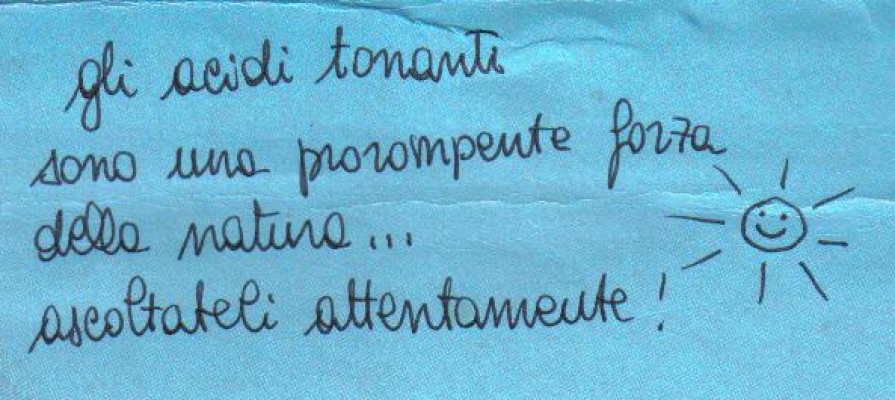 gli acidi tonanti
sono una prorompente forza
della natura...
ascoltateli attentamente!